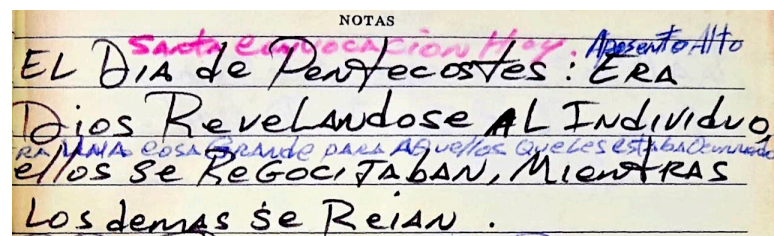 NOTAS
Santa Convocacion Hoy. Aposento Alto
EL DIA de Pentecostes: ERA
Dios Revelandose AL Individuo,
RA UNA COSA GRANDE PARA AQuellos Que Les estaba
ellos se ReGociJaban, Mientras
Los demas se Reian.